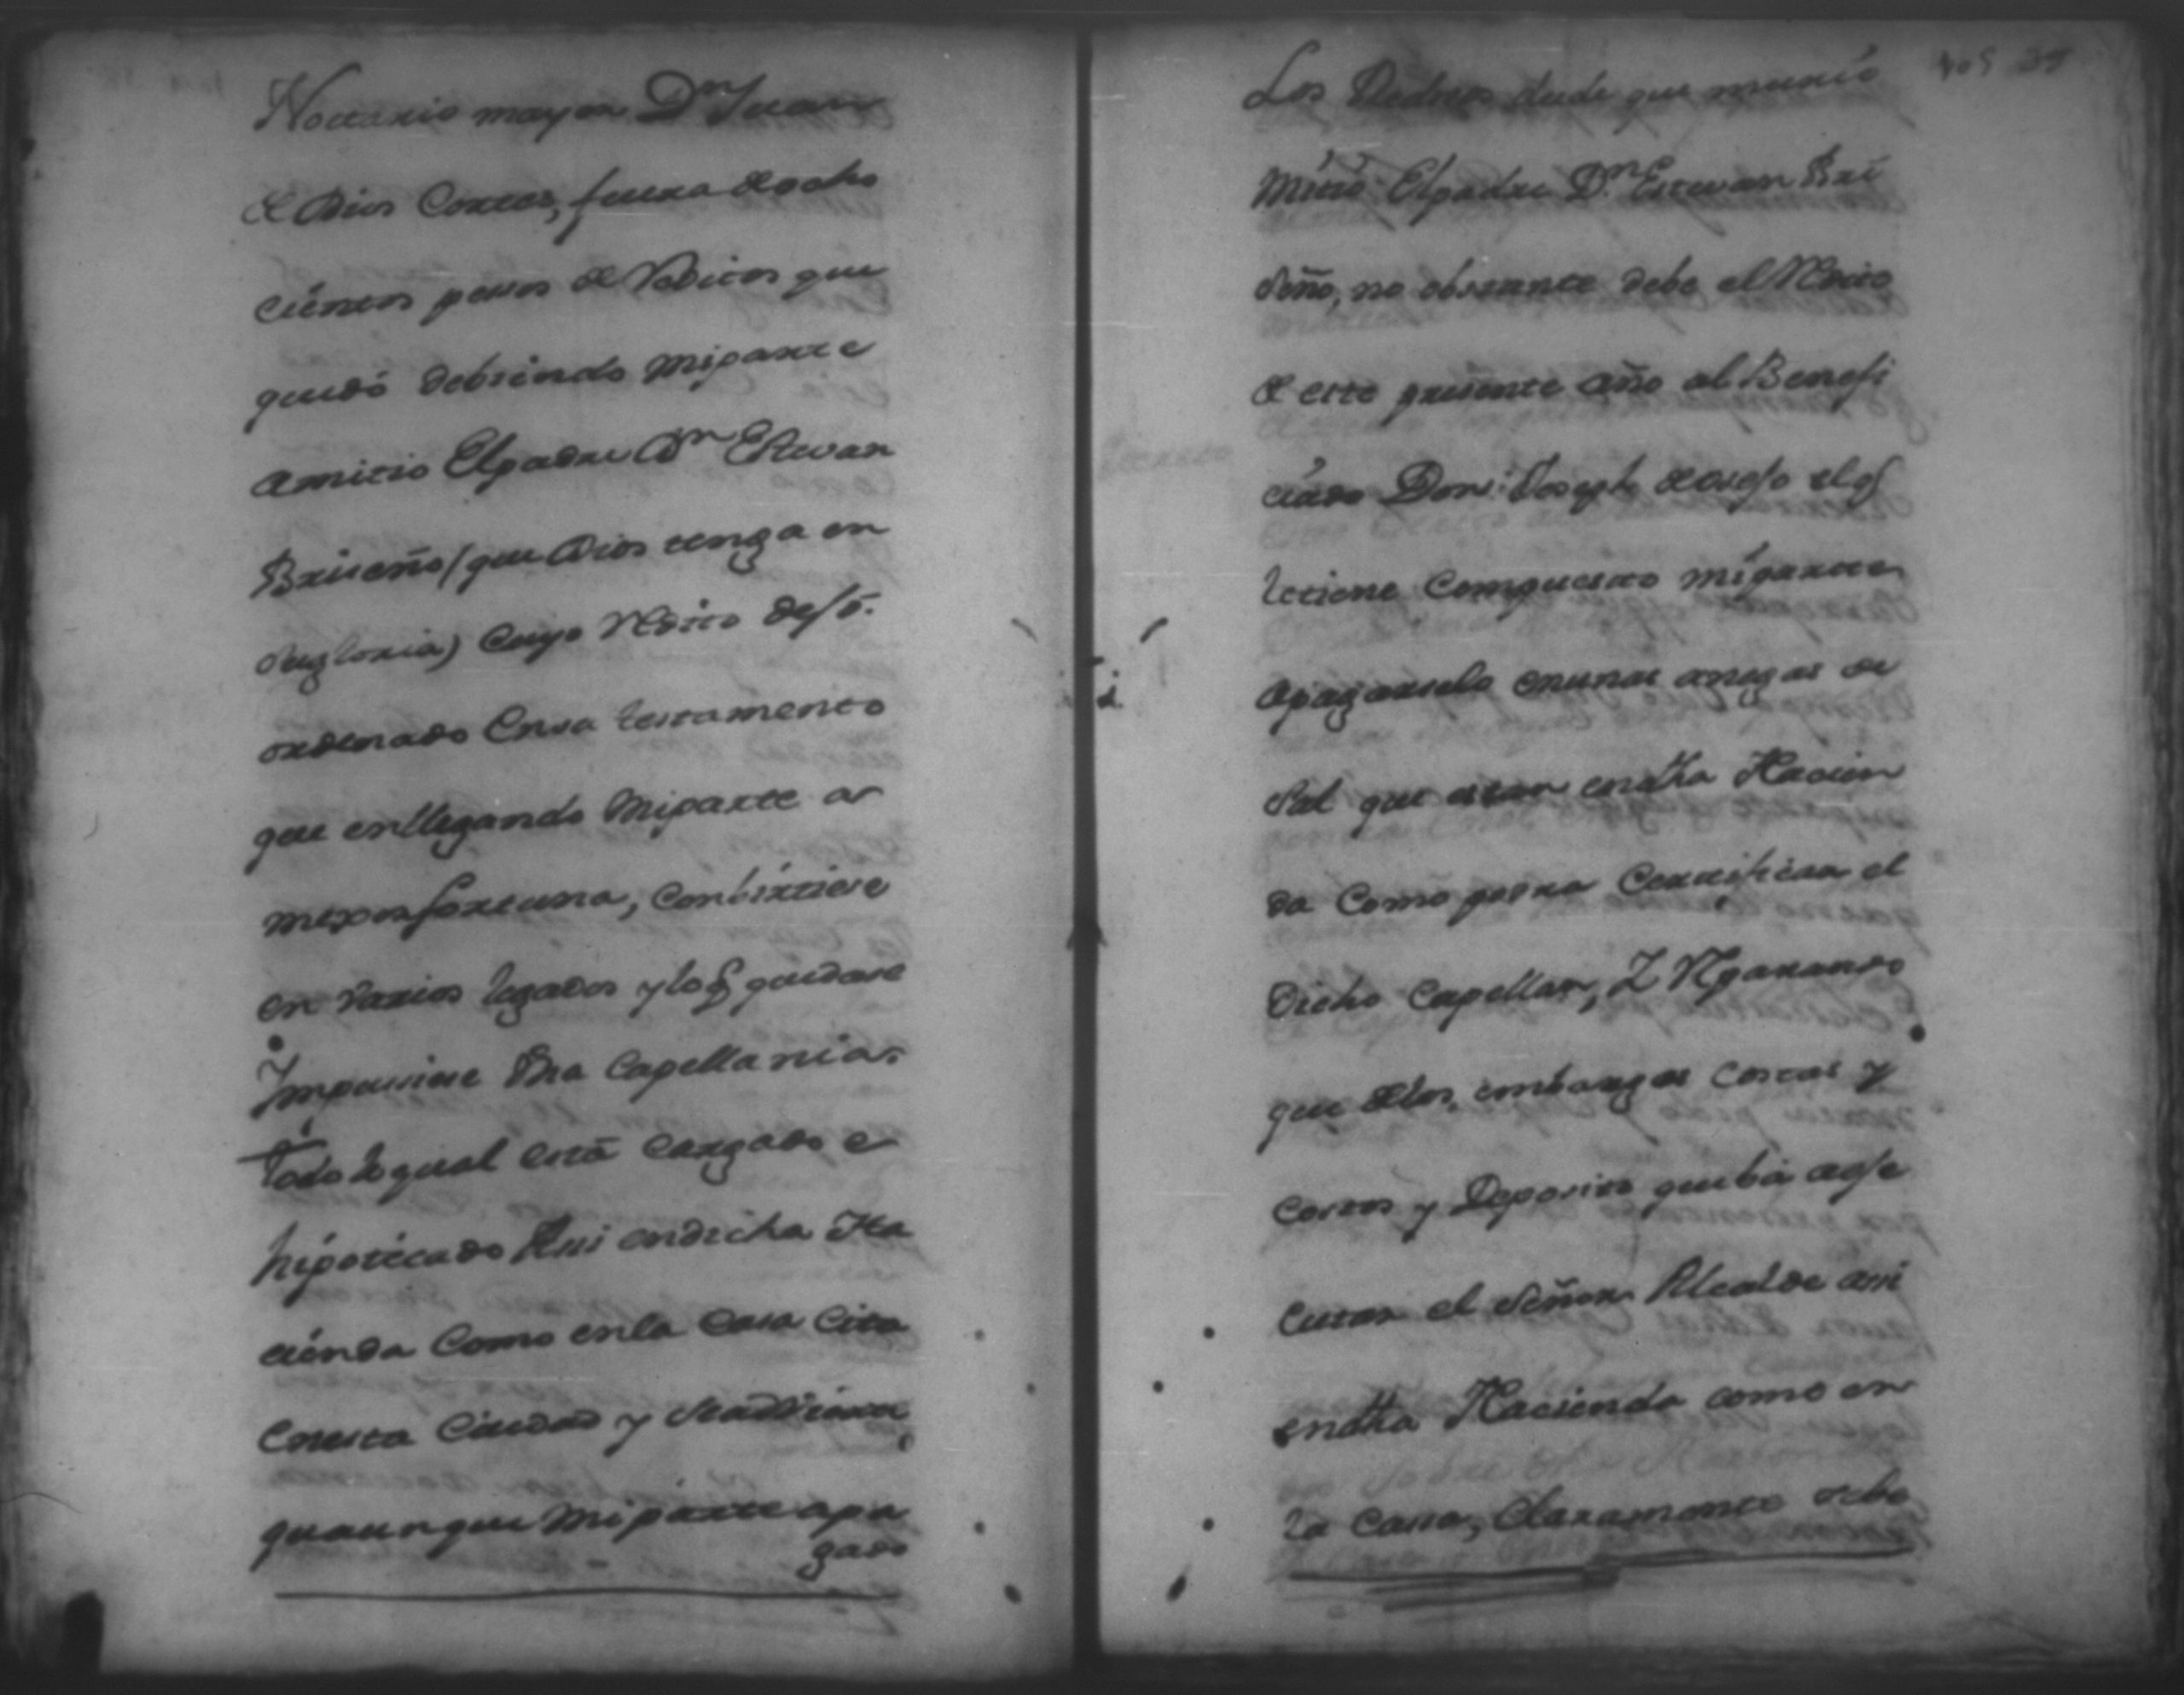 Nottario mayor Dn Juan
de Dios Cortes, fuera de ocho
cientos pessos de Reditos que
quedó debiendo miparte
amitio Elpadre Dn Estevan
Briseño (que Dios tenga en
sugloria) Cuyo Redito
ordenado Ensu testamento
que enllegando Miparte a
mexor fortuna, Conbirtiese
en Varios legados y lo q quedase
Impusiese Una Capellania.
Todo lo qual está Cargado e
hipotecado Assi endicha Ha
cienda Como enla Casa Cita
Enesta Ciudad y
queaunque Miparte apa
gado
Los Reditos desde que murió
Mitio Elpadre Dn Estevan Bri
seño, no obstante debe el Redito
de este presente año al Benefi
ciado Don Joseph el q
letiene Compuesto miparte
apagarselo enunas anegas de
Sal que estan endha Hacien
da Como podra Certificar el
Dicho Capellan, Y Reparando
que delos embargos Costas y
Costos y Depositos que ba aefe
cutar el Señor Alcalde assi
endha Hacienda como en
la Cassa, Claramente debe